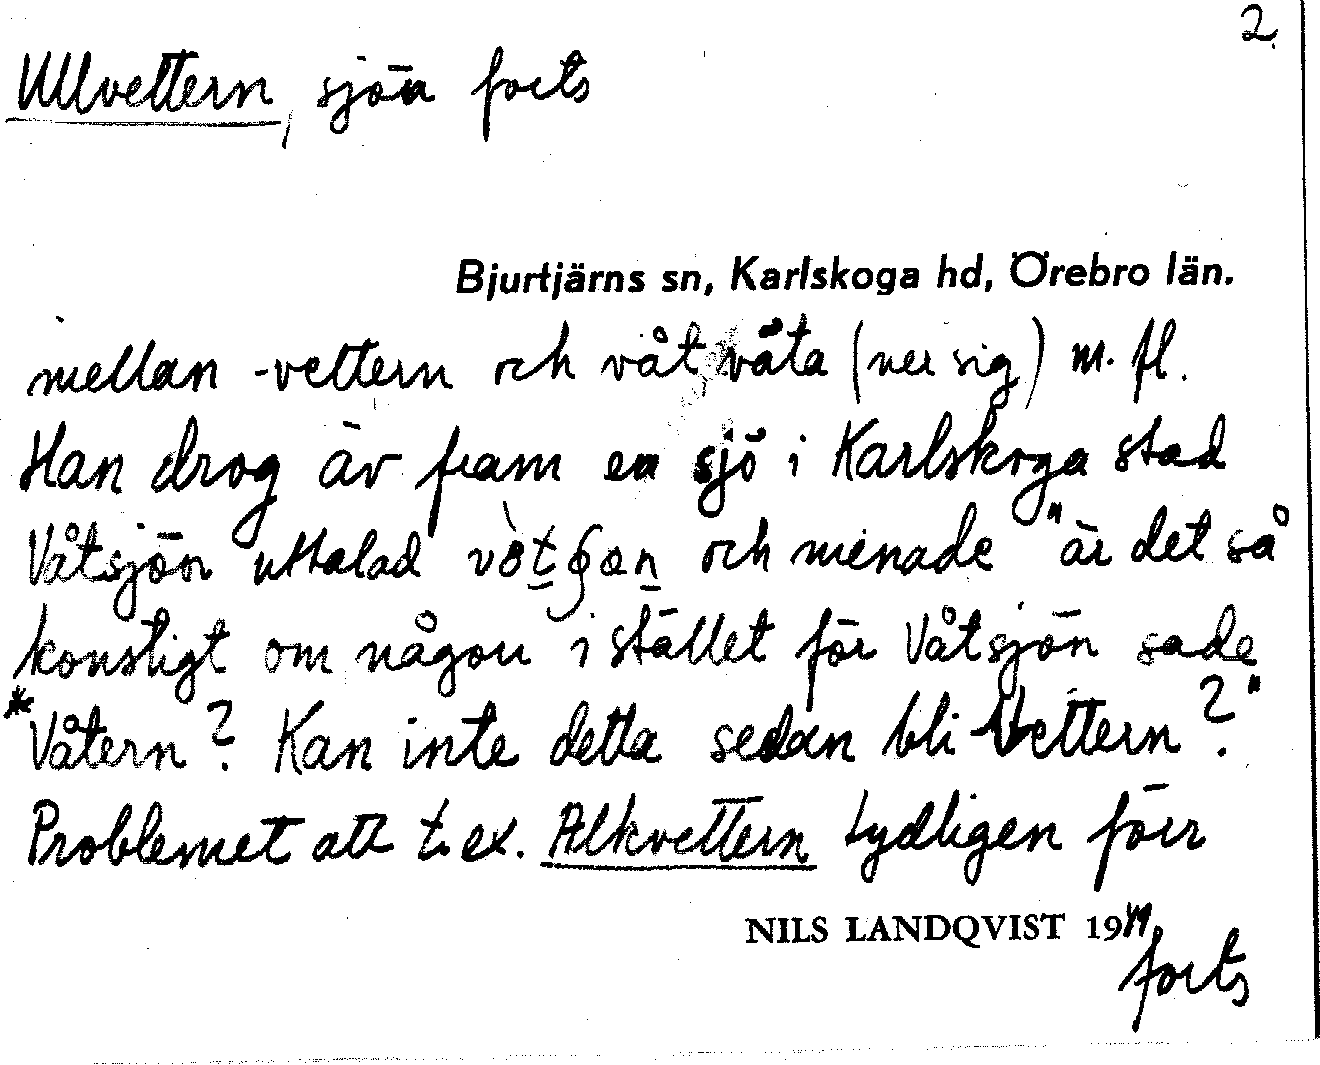 2.
Ullvettern, sjön forts
Bjurtjärns sn, Karlskoga hd, Örebro län.
mellan -vettern och våt, väta (ver sig) m. fl.
Han drog äv fram en sjö i Karlskoga stad
Våtsjön uttalad och menade "är det så
konstigt om någon i stället för Våtsjön sade
*Våtern? Kan inte detta sedan bli -Vettern?"
Problemet att t.ex. Alkvettern tydligen förr
NILS LANDQVIST 19
forts